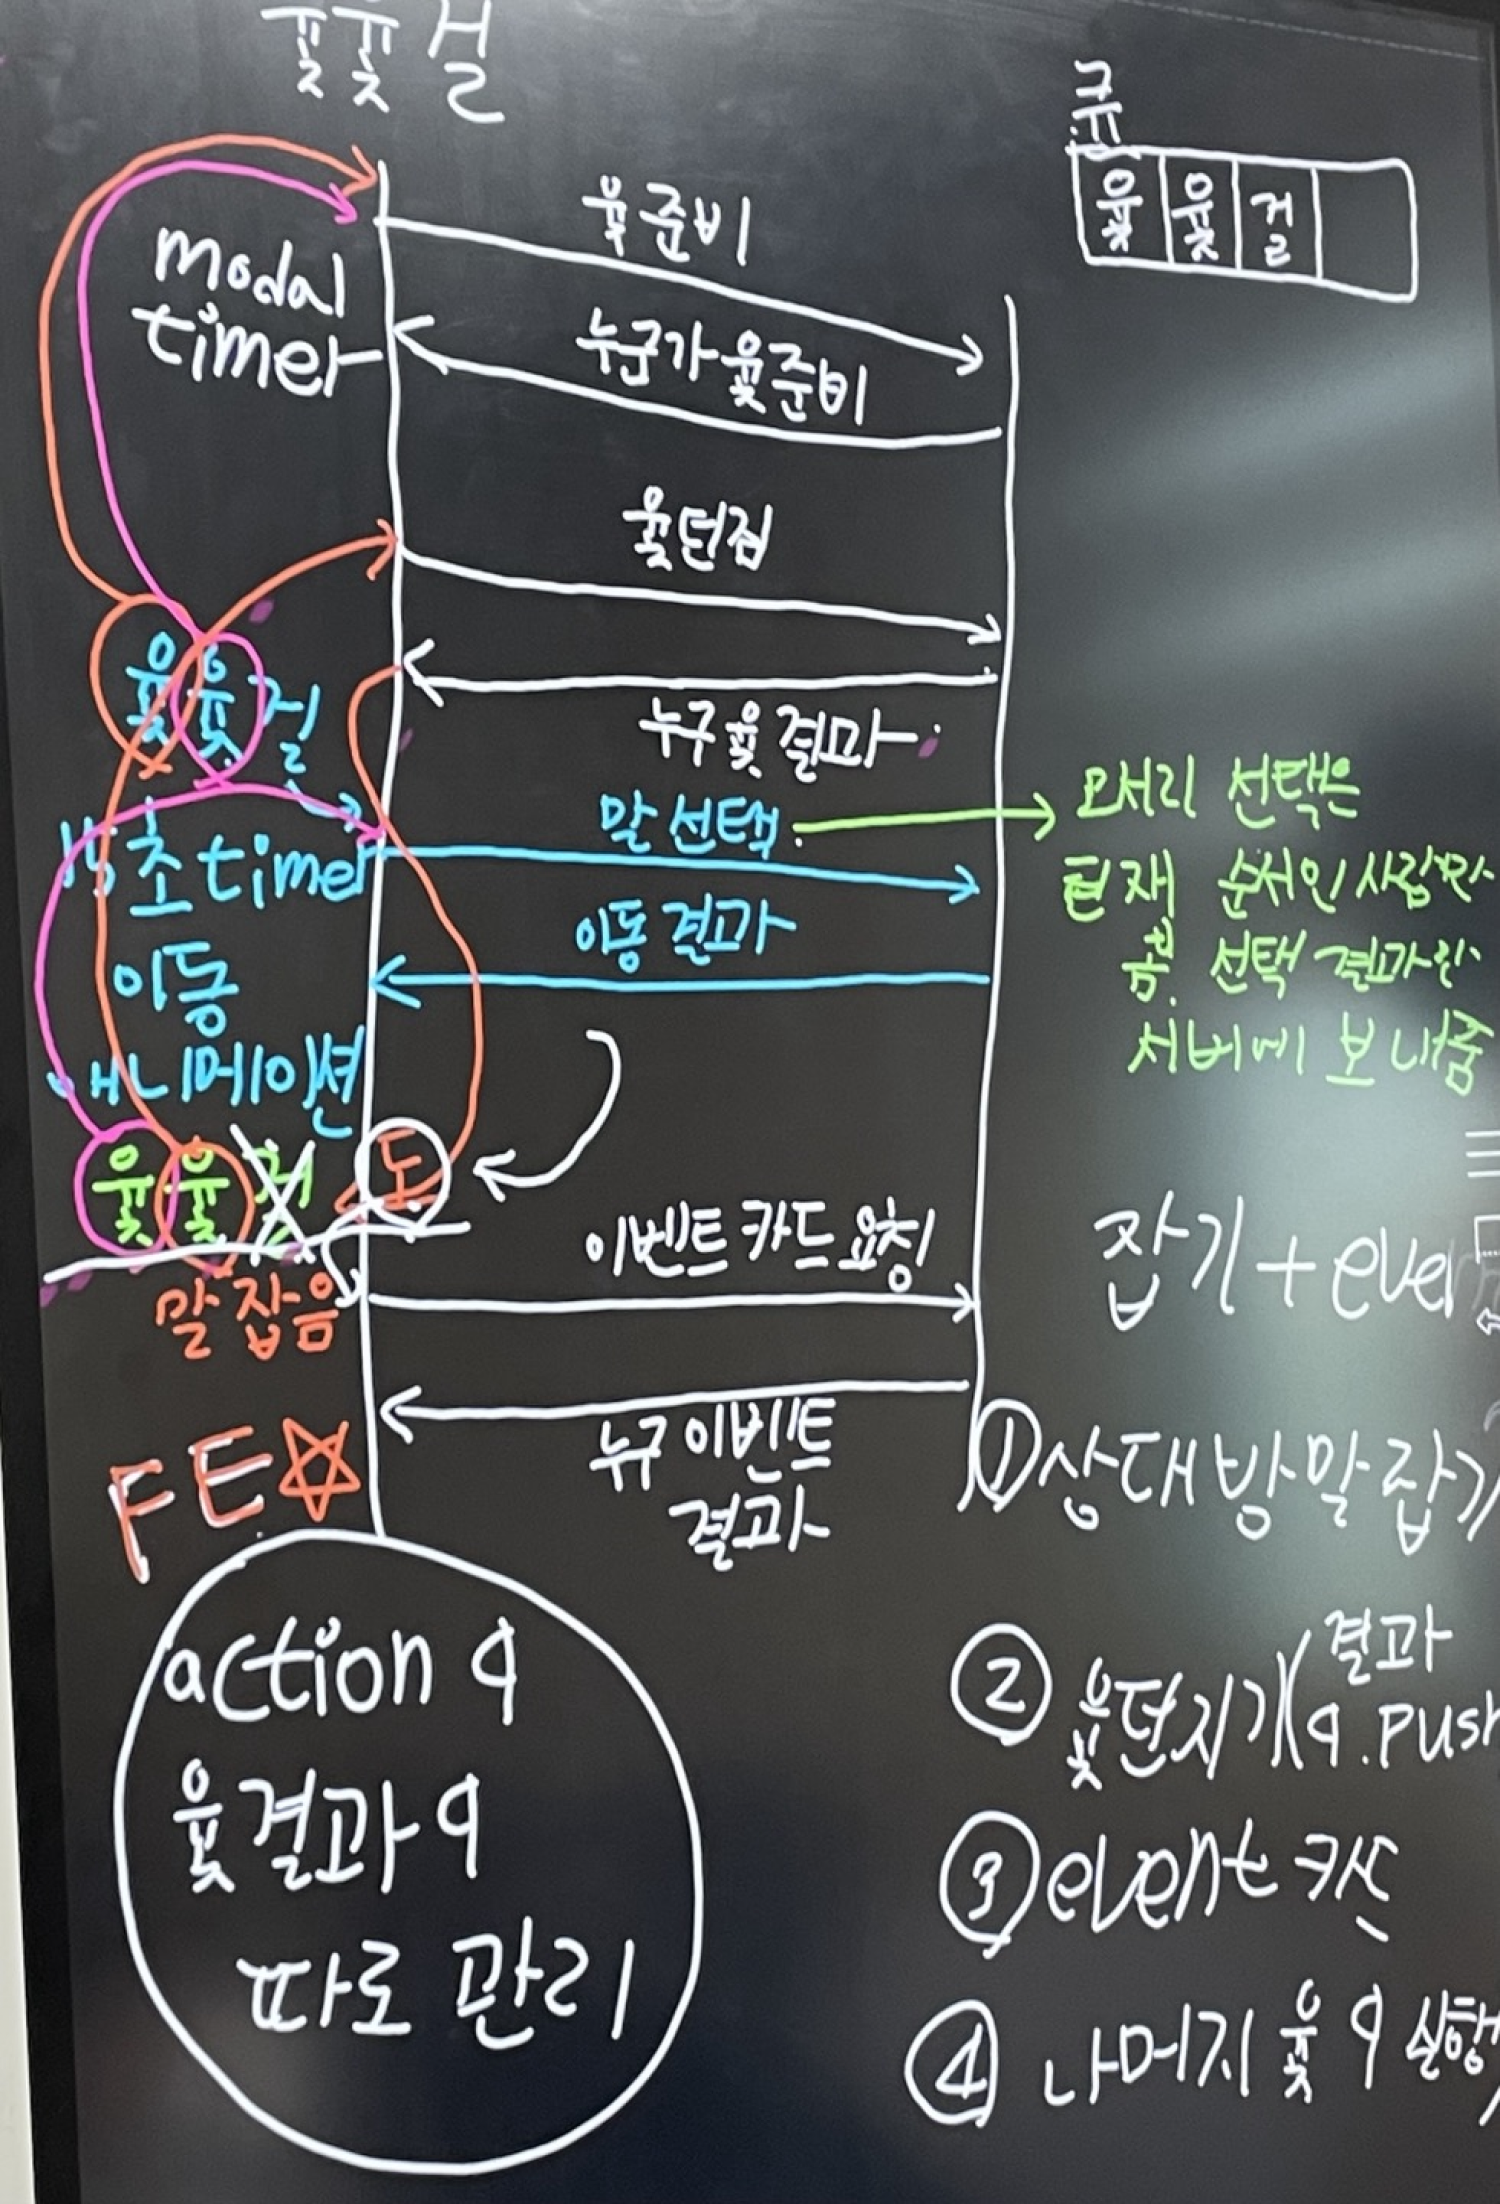 윷윷걸
큐
윷 윷 걸
윷준비
modal
timer
누군가 윷준비
윷던짐
윷윷걸
누구 윷 결과
15초 timer
말 선택
모서리 선택은
현재 순서인 사람만
선택 결과만
서버에 보내줌
이동 결과
이동
애니메이션
윷 윷 걸 도
말 잡음
이벤트 카드 요청
잡기 + even
누구 이벤트
결과
FE
① 상대방 말 잡기
action q
윷결과 q
따로 관리
② 윷던지기(결과
q.push
③ event 칸
④ 나머지 윷 q 실행